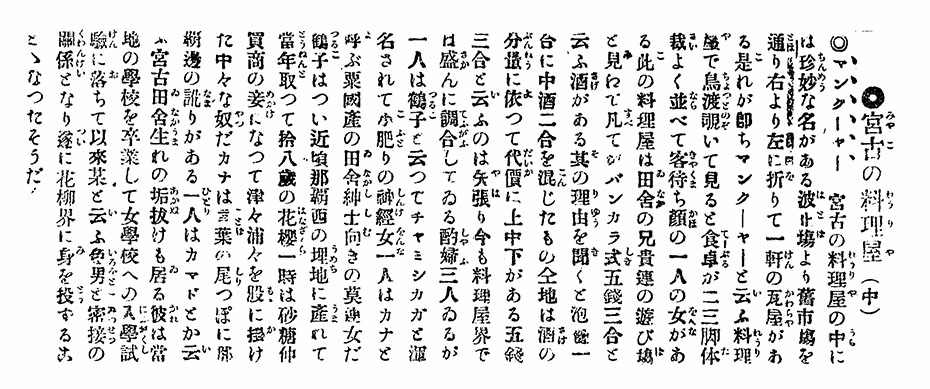 ◉宮古の料理屋(中)
◎マンクーャー 宮古の料理屋の中に
は珍妙な名がある波止塲より舊市塲を
通り右より左に折りて一軒の瓦屋があ
る是れが卽ちマンクーャーと云ふ料理
屋で鳥渡覗いて見ると食卓が二三脚体
裁よく並べて客待ち顔の一人の女があ
る此の料理屋は田舍の兄貴連の遊び塲
と見わて凡てがバンカラ式五錢三合と
云ふ酒がある其の理由を聞くと泡盛一
台に中酒二合を混じたもの仝地は酒の
分量に依つて代價に上中下がある五錢
三合と云ふのは矢張り今も料理屋界で
は盛んに調合してゐる酌婦三人ゐるが
一人は鶴子と云つてチャミシカガと渾
名されて小肥りの神經女一人はカナと
呼ぶ粟國產の田舍紳士向きの莫連女だ
鶴子はつい近頃那覇西の埋地に產れて
當年取つて拾八歲の花櫻一時は砂糖仲
買商の妾になつて津々浦々を股に掛け
た中々な奴だカナは言葉の尾つぽに那
覇邊の訛りがある一人はカマドとか云
ふ宮古田舍生れの垢拔けも居る彼は當
地の學校を卒業して女學校への入學試
驗に落ちて以來某と云ふ色男と密接の
關係となり遂に花柳界に身を投するこ
とゝなつたそうだ